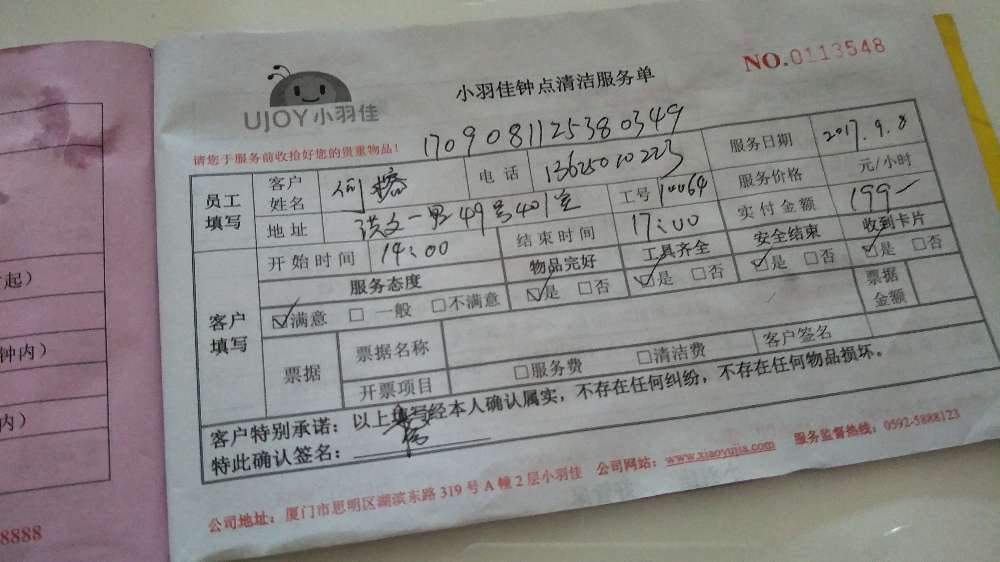 小羽佳钟点清洁服务单
NO.0113548
UJOY小羽佳
请您于服务前收拾好您的贵重物品!
1709081125380349
员工填写 客户姓名 何 电话 13625010223 服务日期 2017.9.8
地址 洪文一里49号401室 工号 10064 服务价格 元/小时
客户填写 开始时间 14:00 结束时间 17:00 实付金额 199
服务态度 物品完好 工具齐全 安全结束 收到卡片
☑满意 □一般 □不满意 ☑是 □否 ☑是 □否 ☑是 □否 ☑是 □否
票据 票据名称 票据金额
开票项目 □服务费 □清洁费 客户签名
客户特别承诺:以上填写经本人确认属实,不存在任何纠纷,不存在任何物品损坏。
特此确认签名:
公司地址:厦门市思明区湖滨东路319号A幢2层小羽佳 公司网站:www.xiaoyujia.com 服务监督热线:0592-5888123
起)
钟内)
内)
8888